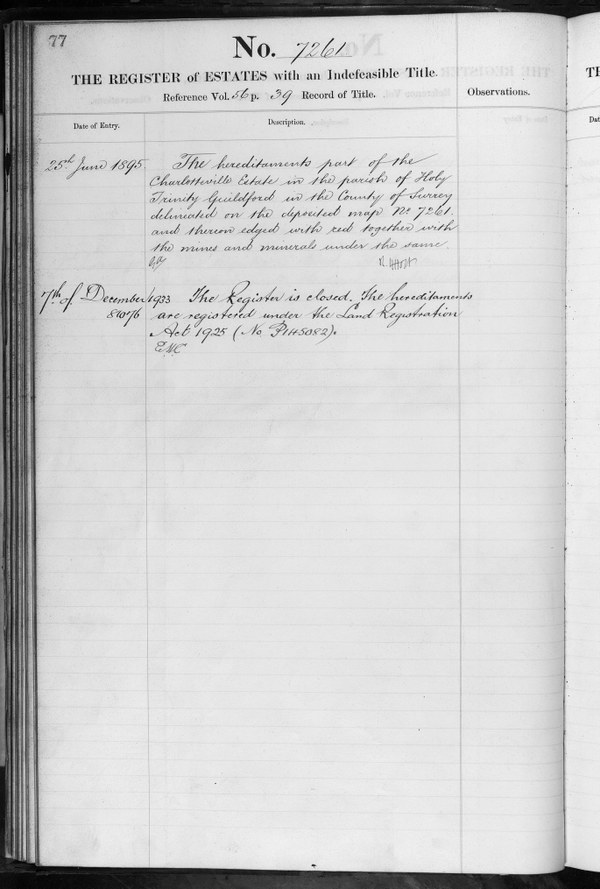 77
No. 7261
THE REGISTER of ESTATES with an Indefeasible Title.
Reference Vol. 56 p. 39 Record of Title.
Observations.
Date of Entry.
Description.
25th June 1895.
The hereditaments part of the
Charlotteville Estate in the parish of Holy
Trinity Guildford in the County of Surrey
delineated on the deposited map No 7261.
and thereon edged with red together with
the mines and minerals under the same.
7th of December 1933 The Register is closed. The hereditaments
81076 are registered under the Land Registration
Act 1925 (No P145082).